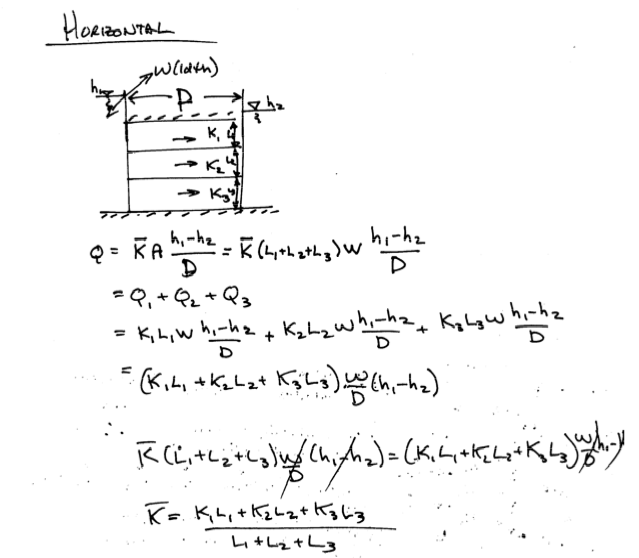 HORIZONTAL
W(idth)
h₁ D h₂
K₁ L₁
K₂ L₂
K₃ L₃
Q = K̄ A (h₁-h₂)/D = K̄ (L₁+L₂+L₃) W (h₁-h₂)/D
= Q₁ + Q₂ + Q₃
= K₁L₁W (h₁-h₂)/D + K₂L₂W (h₁-h₂)/D + K₃L₃W (h₁-h₂)/D
= (K₁L₁ + K₂L₂ + K₃L₃) W/D (h₁-h₂)
∴
K̄ (L₁+L₂+L₃) W/D (h₁-h₂) = (K₁L₁+K₂L₂+K₃L₃) W/D (h₁-
K̄ = (K₁L₁ + K₂L₂ + K₃L₃)/(L₁+L₂+L₃)